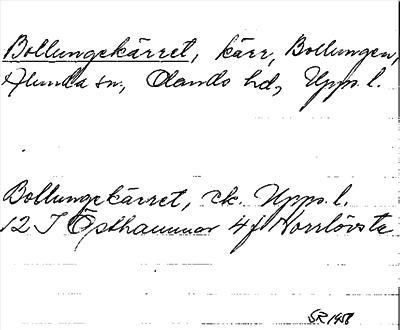 Bollungekärret, kärr, Bollungen,
Alunda sn, Olands hd, Upps. l.
Bollungekärret, ek. Upps. l.
12 I Östhammar 4 f Norrlövsta
SR 1958